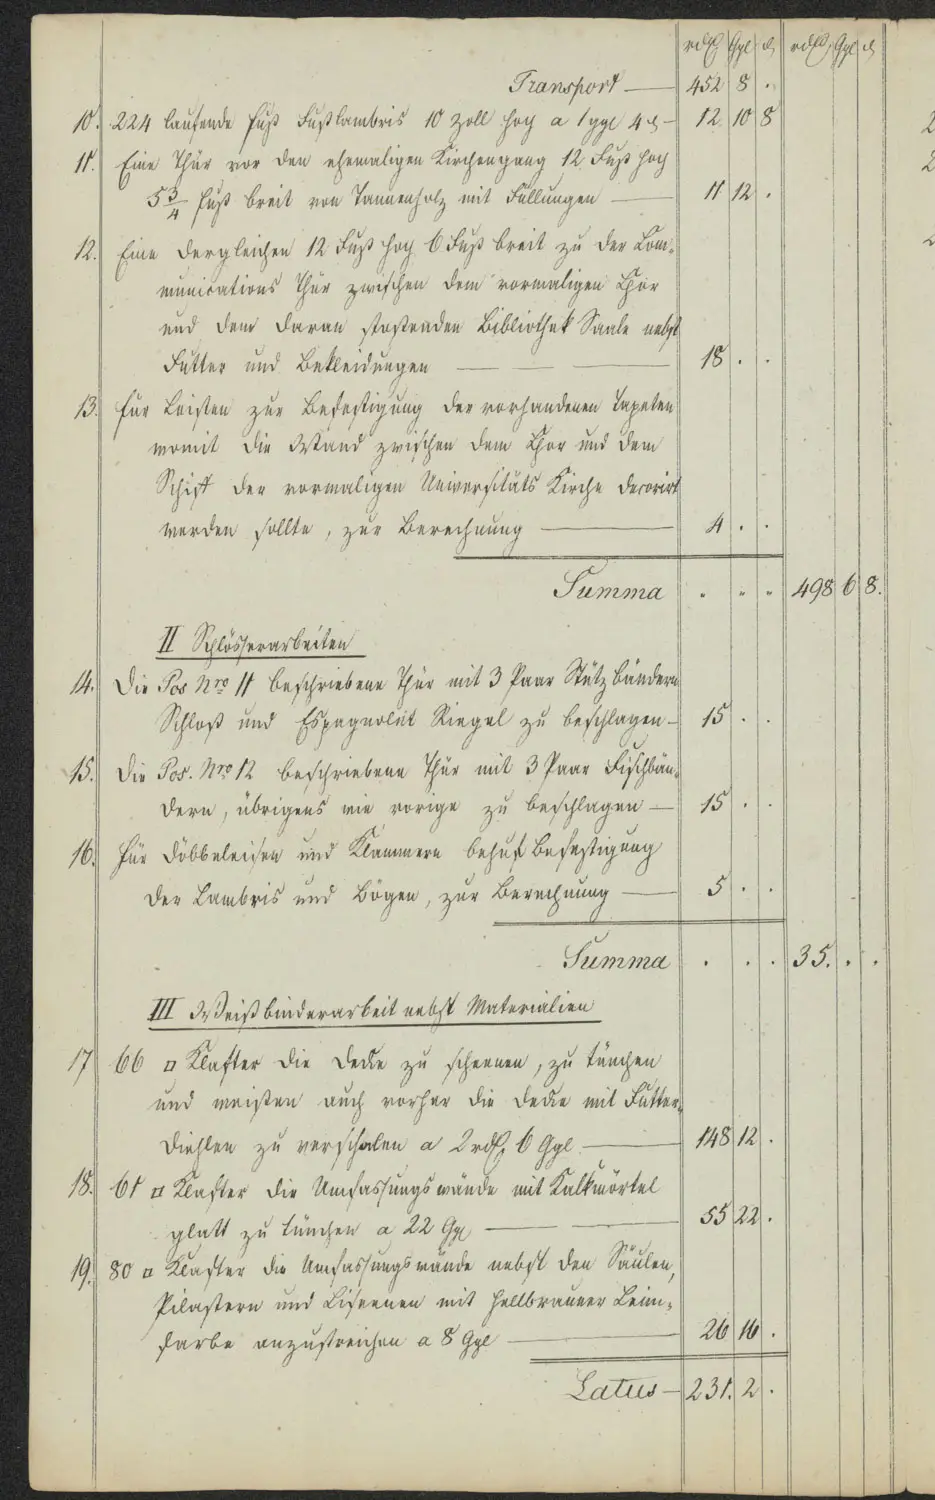 rdℓ Ggl ₰ rdℓ Ggl ₰
Transport — 452 8 .
10. 224 laufende Fuß Fußlambris 10 Zoll hoch a 1 ggl 4 ₰ — 12 10 8
11. Eine Thür vor den ehemaligen Kirchengang 12 Fuß hoch
5 3/4 Fuß breit von Tannenholz mit Füllungen — 11 12 .
12. Eine dergleichen 12 Fuß hoch 6 Fuß breit zu der Com-
munications Thür zwischen dem vormaligen Chor
und dem daran stoßenden Bibliothek Saale nebst
Futter und Bekleidungen — — — 18 . .
13. Für Leisten zur Befestigung der vorhandenen Tapeten
womit die Wand zwischen dem Chor und dem
Schiff der vormaligen Universitäts Kirche decorirt
werden sollte, zur Berechnung — 4 . .
Summa " " " 498 6 8.
II Schlösserarbeiten
14. Die Pos Nro 11 beschriebene Thür mit 3 Paar Stützbändern
Schloß und Espagnolet Riegel zu beschlagen — 15 . .
15. Die Pos. Nro 12 beschriebene Thür mit 3 Paar Fischbän-
dern, übrigens wie vorige zu beschlagen — 15 . .
16. Für Döbbeleisen und Klammern behuf Befestigung
der Lambris und Bögen, zur Berechnung — 5 . .
Summa . . . 35. . .
III Weißbinderarbeit nebst Materialien
17 66 □ Klafter die Decke zu scheenen, zu tünchen
und weißen auch vorher die Decke mit Futter-
diehlen zu verschalen a 2 rdℓ 6 Ggl. — 148 12 .
18. 61 □ Klafter die Umfassungswände mit Kalkmörtel
glatt zu tünchen a 22 Ggl — — 55 22 .
19. 80 □ Klafter die Umfassungswände nebst den Säulen,
Pilastern und Liseenen mit hellbrauner Leim-
farbe anzustreichen a 8 Ggl — 26 16 .
Latus — 231. 2 .